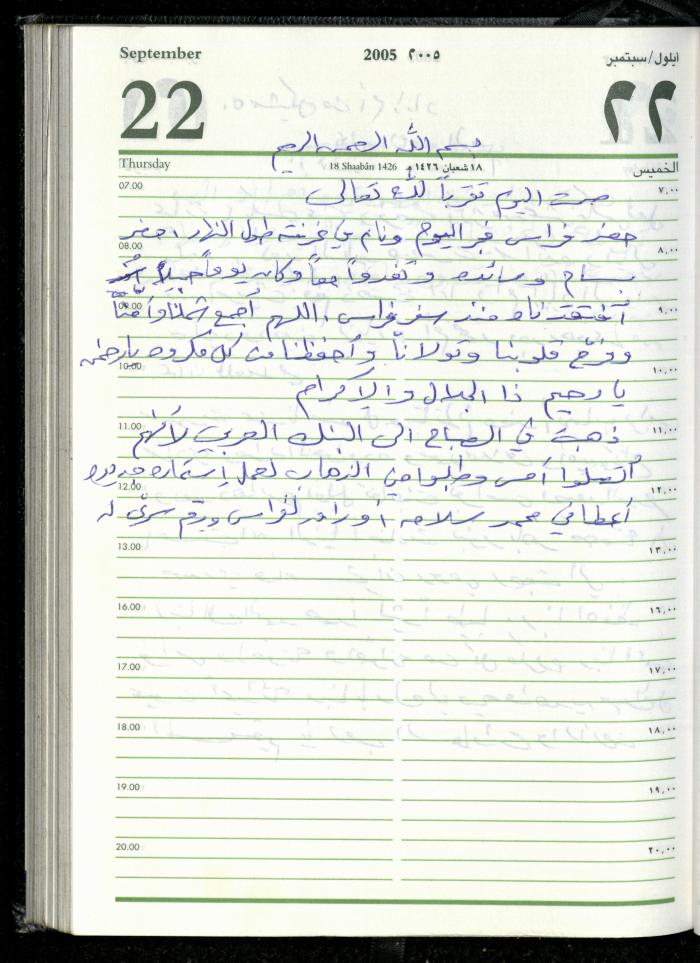 September 2005 ٢٠٠٥ ايلول/سبتمبر
22 ٢٢
بسم الله الرحمن الرحيم
Thursday 18 Shaabân 1426 ١٨ شعبان ١٤٢٦ هـ الخميس
07.00 ٧,٠٠
صمت اليوم تقرباً لله تعالى
حضر فراس فجر اليوم ونام في غرفته طول النهار، حضر
08.00 ٨,٠٠
سماح ومائده وتغدوا معاً وكان يوماً جميلاً
09.00 ٩,٠٠
أفتقدناه منذ سفر فراس، اللهم أجمع شملنا وأمنّا
وفرّج قلوبنا وتولانا وأحفظنا من كل مكروه يا رحمن
10.00 ١٠,٠٠
يا رحيم ذا الجلال والإكرام
11.00 ١١,٠٠
ذهبت في الصباح الى البنك العربي لأنهم
أتصلوا أمس وطلبوا مني الذهاب لعمل إستماره جديده
12.00 ١٢,٠٠
أعطاني محمد سلامه أوراق لفراس ورقم سري له
13.00 ١٣,٠٠
16.00 ١٦,٠٠
17.00 ١٧,٠٠
18.00 ١٨,٠٠
19.00 ١٩,٠٠
20.00 ٢٠,٠٠